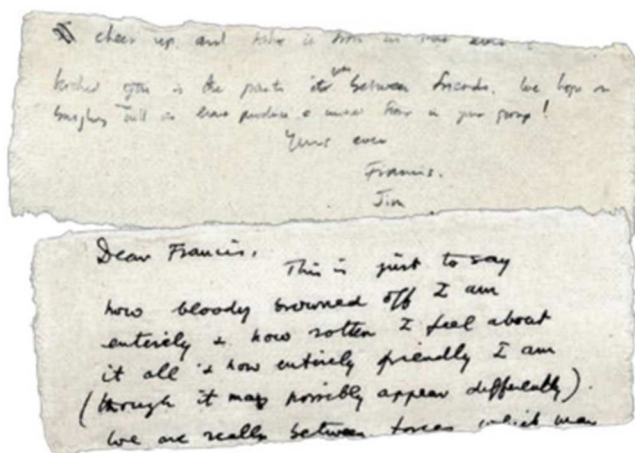 cheer up and take it from us
kicked you in the pants it was between friends. We hope our
burglary will at least produce a united front in your group!
Yours ever
Francis.
Jim
Dear Francis,
This is just to say
how bloody browned off I am
entirely & how rotten I feel about
it all & how entirely friendly I am
(though it may possibly appear differently).
We are really between forces which may